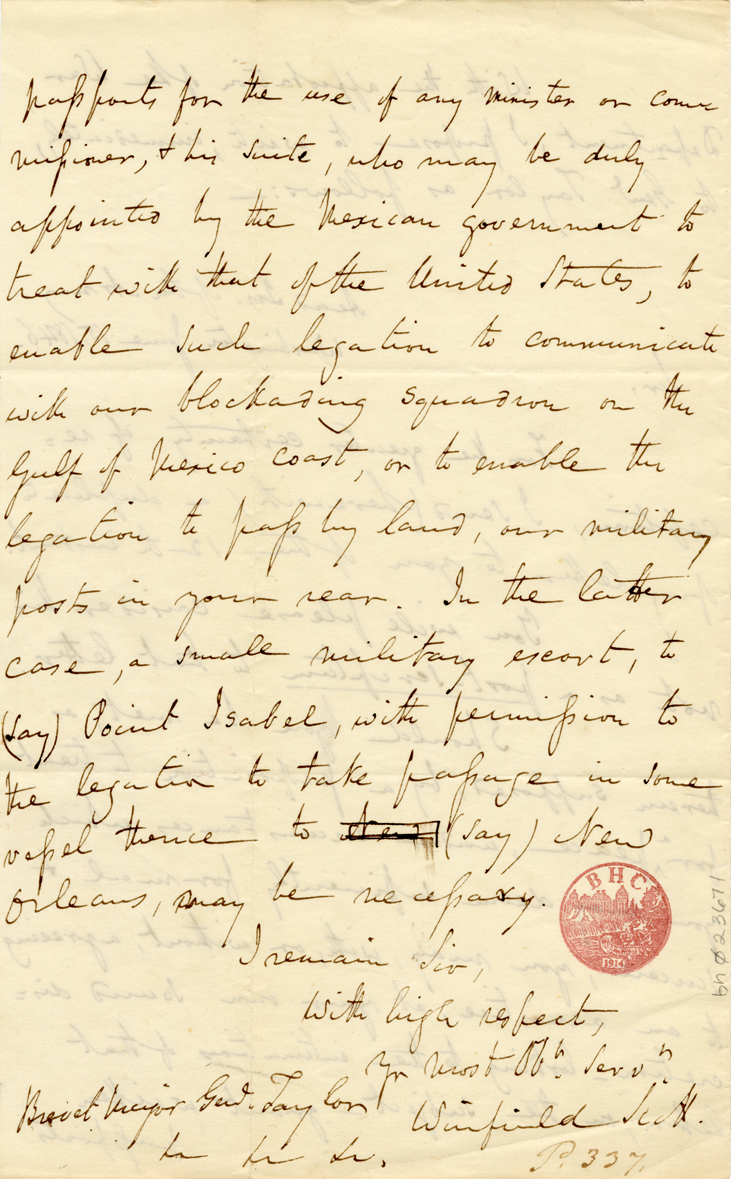 passports for the use of any minister or com-
missioner, & his suite, who may be duly
appointed by the Mexican government to
treat with that of the United States, to
enable such legation to communicate
with our blockading squadron on the
Gulf of Mexico coast, or to enable the
legation to pass by land, our military
posts in your rear. In the latter
case, a small military escort, to
(say) Point Isabel, with permission to
the legation to take passage in some
vessel thence to New (say) New
Orleans, may be necessary.
I remain Sir,
With high respect,
Yr most Obt. Servt
Brevet Major Genl. Taylor Winfield Scott.
&c &c &c.
P. 337.
BHC
1914
bh023671